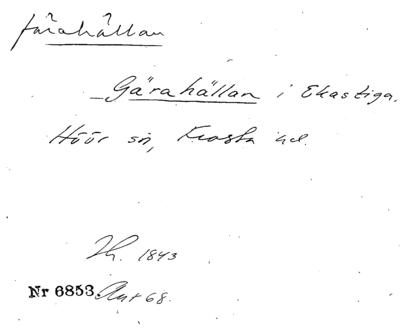 fårahållan
Gärahällan i Ekastiga.
Höör sn, Frosta hd.
Th. 1843
Nr 6853. Ant 68.